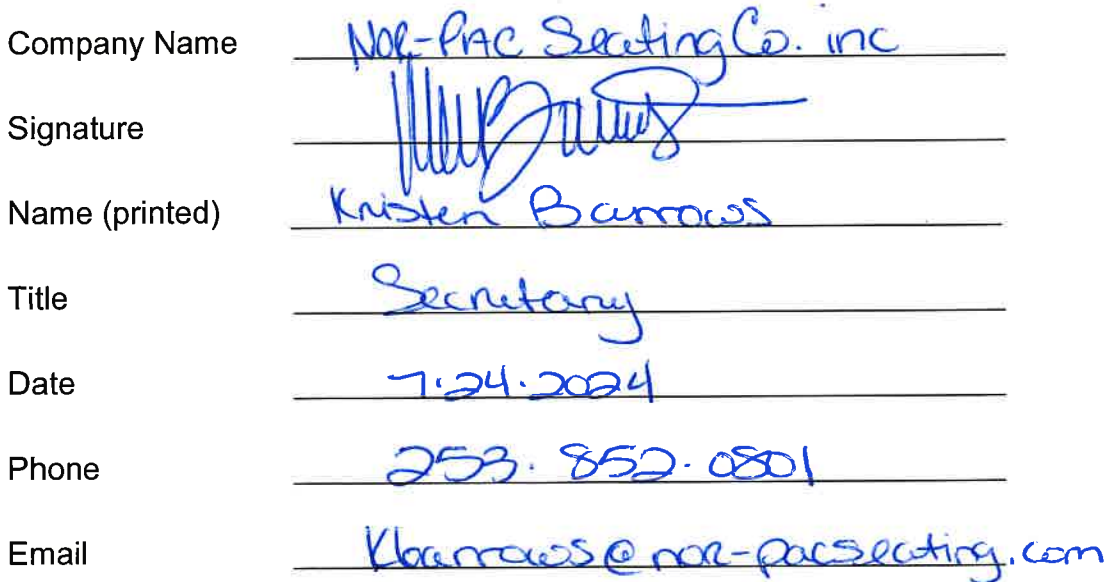 Company Name NOR-PAC Seating Co. inc
Signature
Name (printed) Kristen Barrows
Title Secretary
Date 7.24.2024
Phone 253.852.0801
Email Kbarrows@nor-pacseating.com